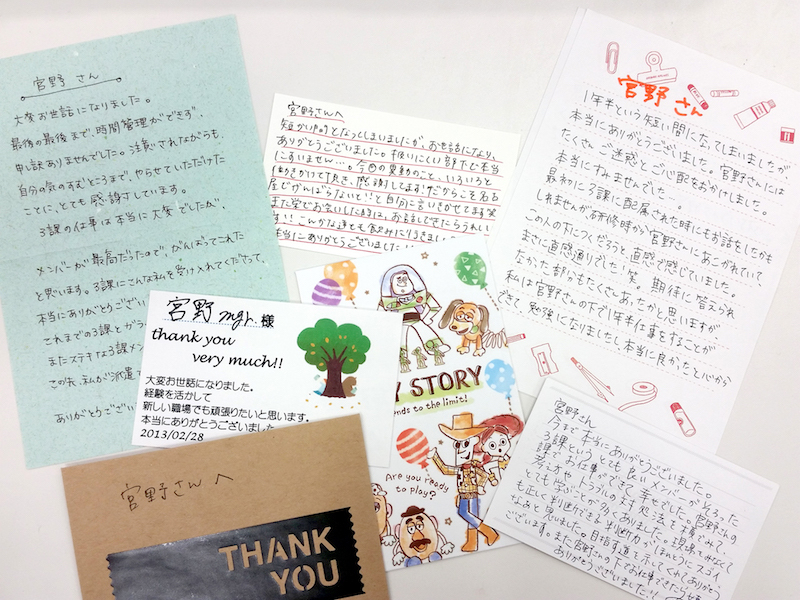 宮野 さん
大変お世話になりました。
最後の最後まで、時間管理ができず、
申し訳ありませんでした。注意されながらも、
自分の気のすむところまで、やらせていただけた
ことに、とても感謝しています。
3課の仕事は本当に大変でしたが、
メンバーが最高だったので、がんばってこれた
と思います。3課にこんな私を受け入れてくださって、
本当にありがとうござい
これまでの3課とがう
またステキな3課メン
この先、私が派遣
ありがとうござい
宮野さんへ
短かい間となってしまいましたが、お世話になり、
ありがとうございました。扱いにくい部下で本当
にすいません…。今回の異動のこと、いろいろと
働きかけて頂き、感謝してます!だからこそ名古
屋でがんばらないと!!と自分に言いきかせてます笑
また栄でお会いした時には、お話しできたらうれしい
です!!こんかな達とも飲みに行きましょ
本当にありがとうございました!!
宮野さん
1年半という短い間になってしまいましたが
本当にありがとうございました。宮野さんには
たくさんご迷惑とご心配をおかけしました。
本当にすみませんでした…。
最初に3課に配属された時にもお話をしたかも
しれませんが研修時から宮野さんにあこがれていて
この人の下につくだろうと直感で感じていました。
まさに直感通りでした笑。期待に答えられ
なかった部分もたくさんあったかと思いますが
私は宮野さんの下で1年半仕事をすることが
できて、勉強になりましたし本当に良かったと心から
宮野 mgr. 様
thank you
very much!!
大変お世話になりました。
経験を活かして
新しい職場でも頑張りたいと思います。
本当にありがとうございました
2013/02/28
Y STORY
ends to the limit!
Are you ready
to play?
宮野さんへ
THANK
YOU
宮野さん
今まで本当にありがとうございました。
3課というとても良いメンバーがそろった
課でお仕事ができて幸せでした。宮野さんの
考え方や、トラブルの対処法を横でみて、
とても学ぶことが多くありました。現場をみなくて
も正しく判断できる判断力がほんとうにスゴイ
なぁと見ていました。目指す道を示してくれてありがとう
ございます。また宮野さんの下でお仕事できたら
ありがとうございました!!